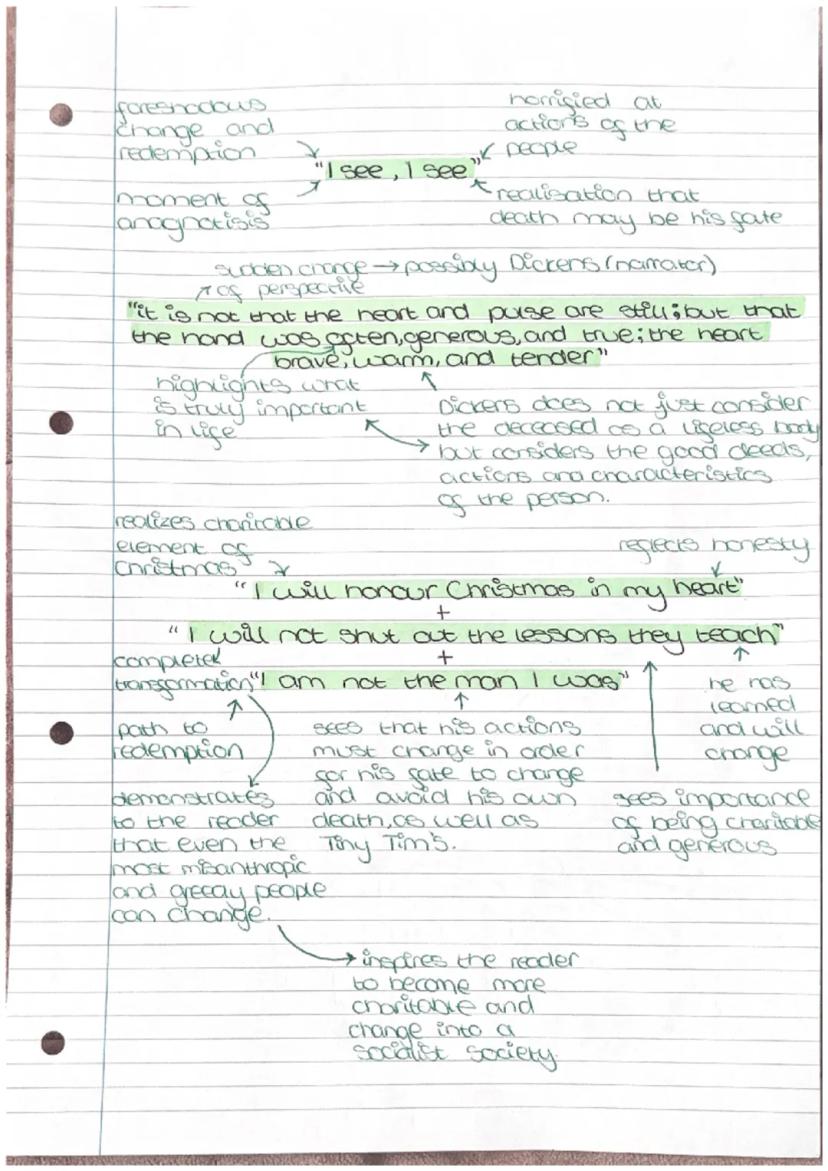 foreshadows
change and
redemption
horrified at
actions of the
people
"I see, I see"
moment of
anagnotisis
realisation that
death may be his fate
sudden change → possibly Dickens (narrator)
of perspective
"it is not that the heart and pulse are still; but that
the hand was open, generous, and true; the heart
brave, warm, and tender"
highlights what
is truly important
in life
Dickens does not just consider
the deceased as a lifeless body
but considers the good deeds,
actions and characteristics
of the person.
realizes charitable
element of
Christmas
reflects honesty
"I will honour Christmas in my heart"
+
"I will not shut out the lessons they teach"
+
complete
transformation
"I am not the man I was"
path to
redemption
sees that his actions
must change in order
for his fate to change
and avoid his own
death, as well as
Tiny Tim's.
he has
learned
and will
change
sees importance
of being charitable
and generous
demonstrates
to the reader
that even the
most misanthropic
and greedy people
can change.
inspires the reader
to become more
charitable and
change into a
socialist society.